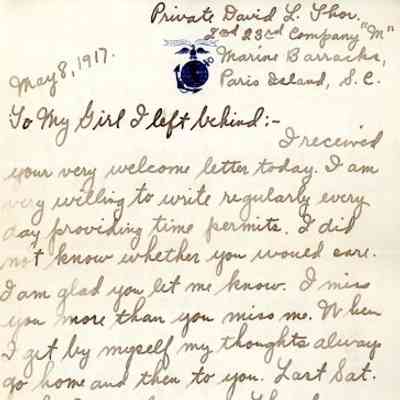 Private David L. Thor.
23rd Company "M"
Marine Barracks,
Paris Island, S.C.
May 8, 1917.
To My Girl I left behind:-
I received
your very welcome letter today. I am
very willing to write regularly every
day providing time permits. I did
not know whether you would care.
I am glad you let me know. I miss
you more than you miss me. When
I get by myself my thoughts always
go home and then to you. Last Sat.